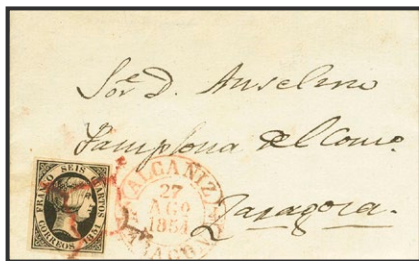 Sor. D. Anselmo
Pamplona del Com.o
Zaragoza.
FRANCO SEIS CUARTOS
CORREOS 1851
ALCAÑIZ
27
AGO
1851
ARAGON